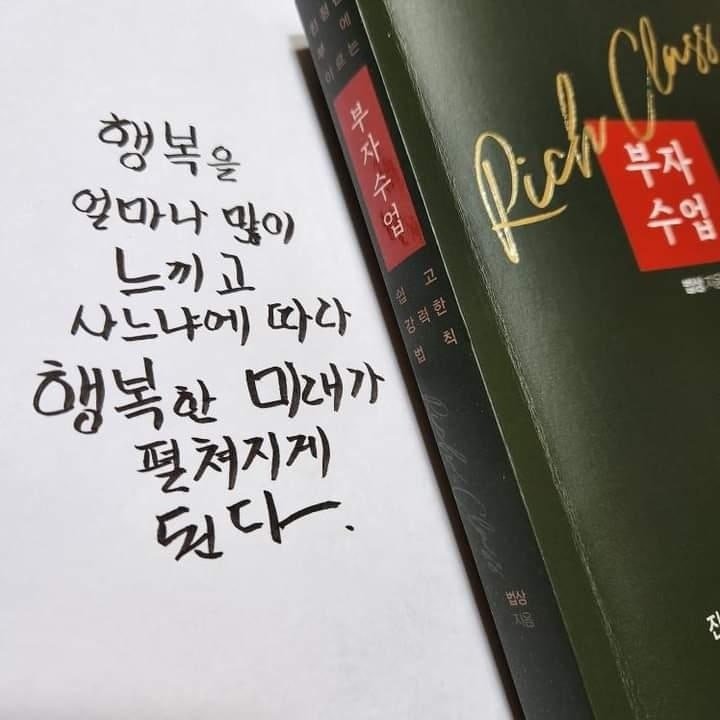 행복을
얼마나 많이
느끼고
사느냐에 따라
행복한 미래가
펼쳐지게
된다.
부에
이르는
부자수업
쉽고
강력한
법칙
Rich Class
법상
지음
Rich Class
부자
수업
법상 지음